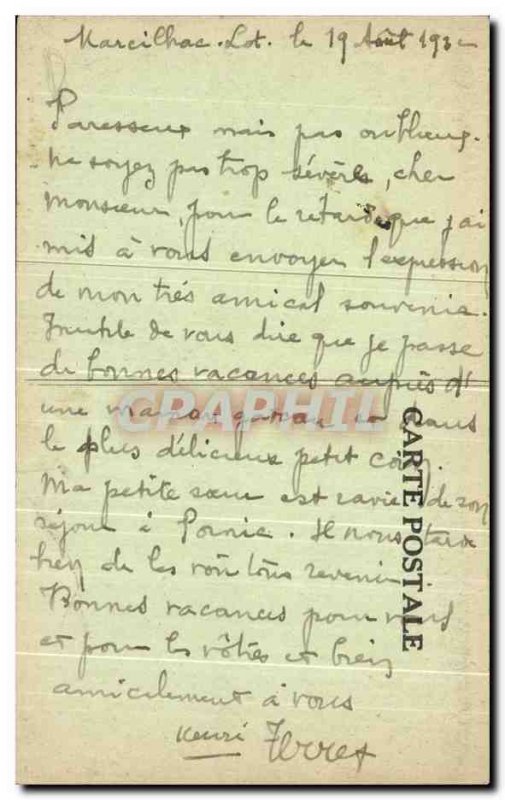 Marcilhac. Lot. le 19 Août 193
Paresseux mais pas oublieux.
Ne soyez pas trop sévères, cher
monsieur, pour le retard que j'ai
mis à vous envoyer l'expression
de mon très amical souvenir.
Inutile de vous dire que je passe
de bonnes vacances auprès d'
une maman dans
le plus délicieux petit coin.
Ma petite sœur est ravie de son
séjour à Pornic. Il nous tarde
de les voir tous revenir
Bonnes vacances pour vous
et pour les vôtres et bien
amicalement à vous
Henri Ferret
CARTE POSTALE
CPAPHIL